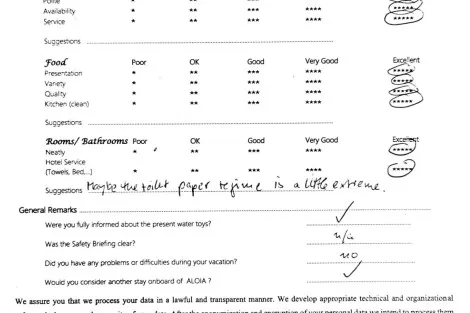 Polite * ** ***
Availability * ** *** **** *****
Service * ** *** **** *****
Suggestions
Food Poor OK Good Very Good Excellent
Presentation * ** *** **** *****
Variety * ** *** **** *****
Quality * ** *** **** *****
Kitchen (clean) * ** *** **** *****
Suggestions
Rooms/ Bathrooms Poor OK Good Very Good Excellent
Neatly * ** *** **** *****
Hotel Service
(Towels, Bed,...) * ** *** **** *****
Suggestions Maybe the toilet paper regime is a little extreme.
General Remarks
Were you fully informed about the present water toys? ✓
Was the Safety Briefing clear? n/a
Did you have any problems or difficulties during your vacation? NO
Would you consider another stay onboard of ALOIA ? ✓
We assure you that we process your data in a lawful and transparent manner. We develop appropriate technical and organizational